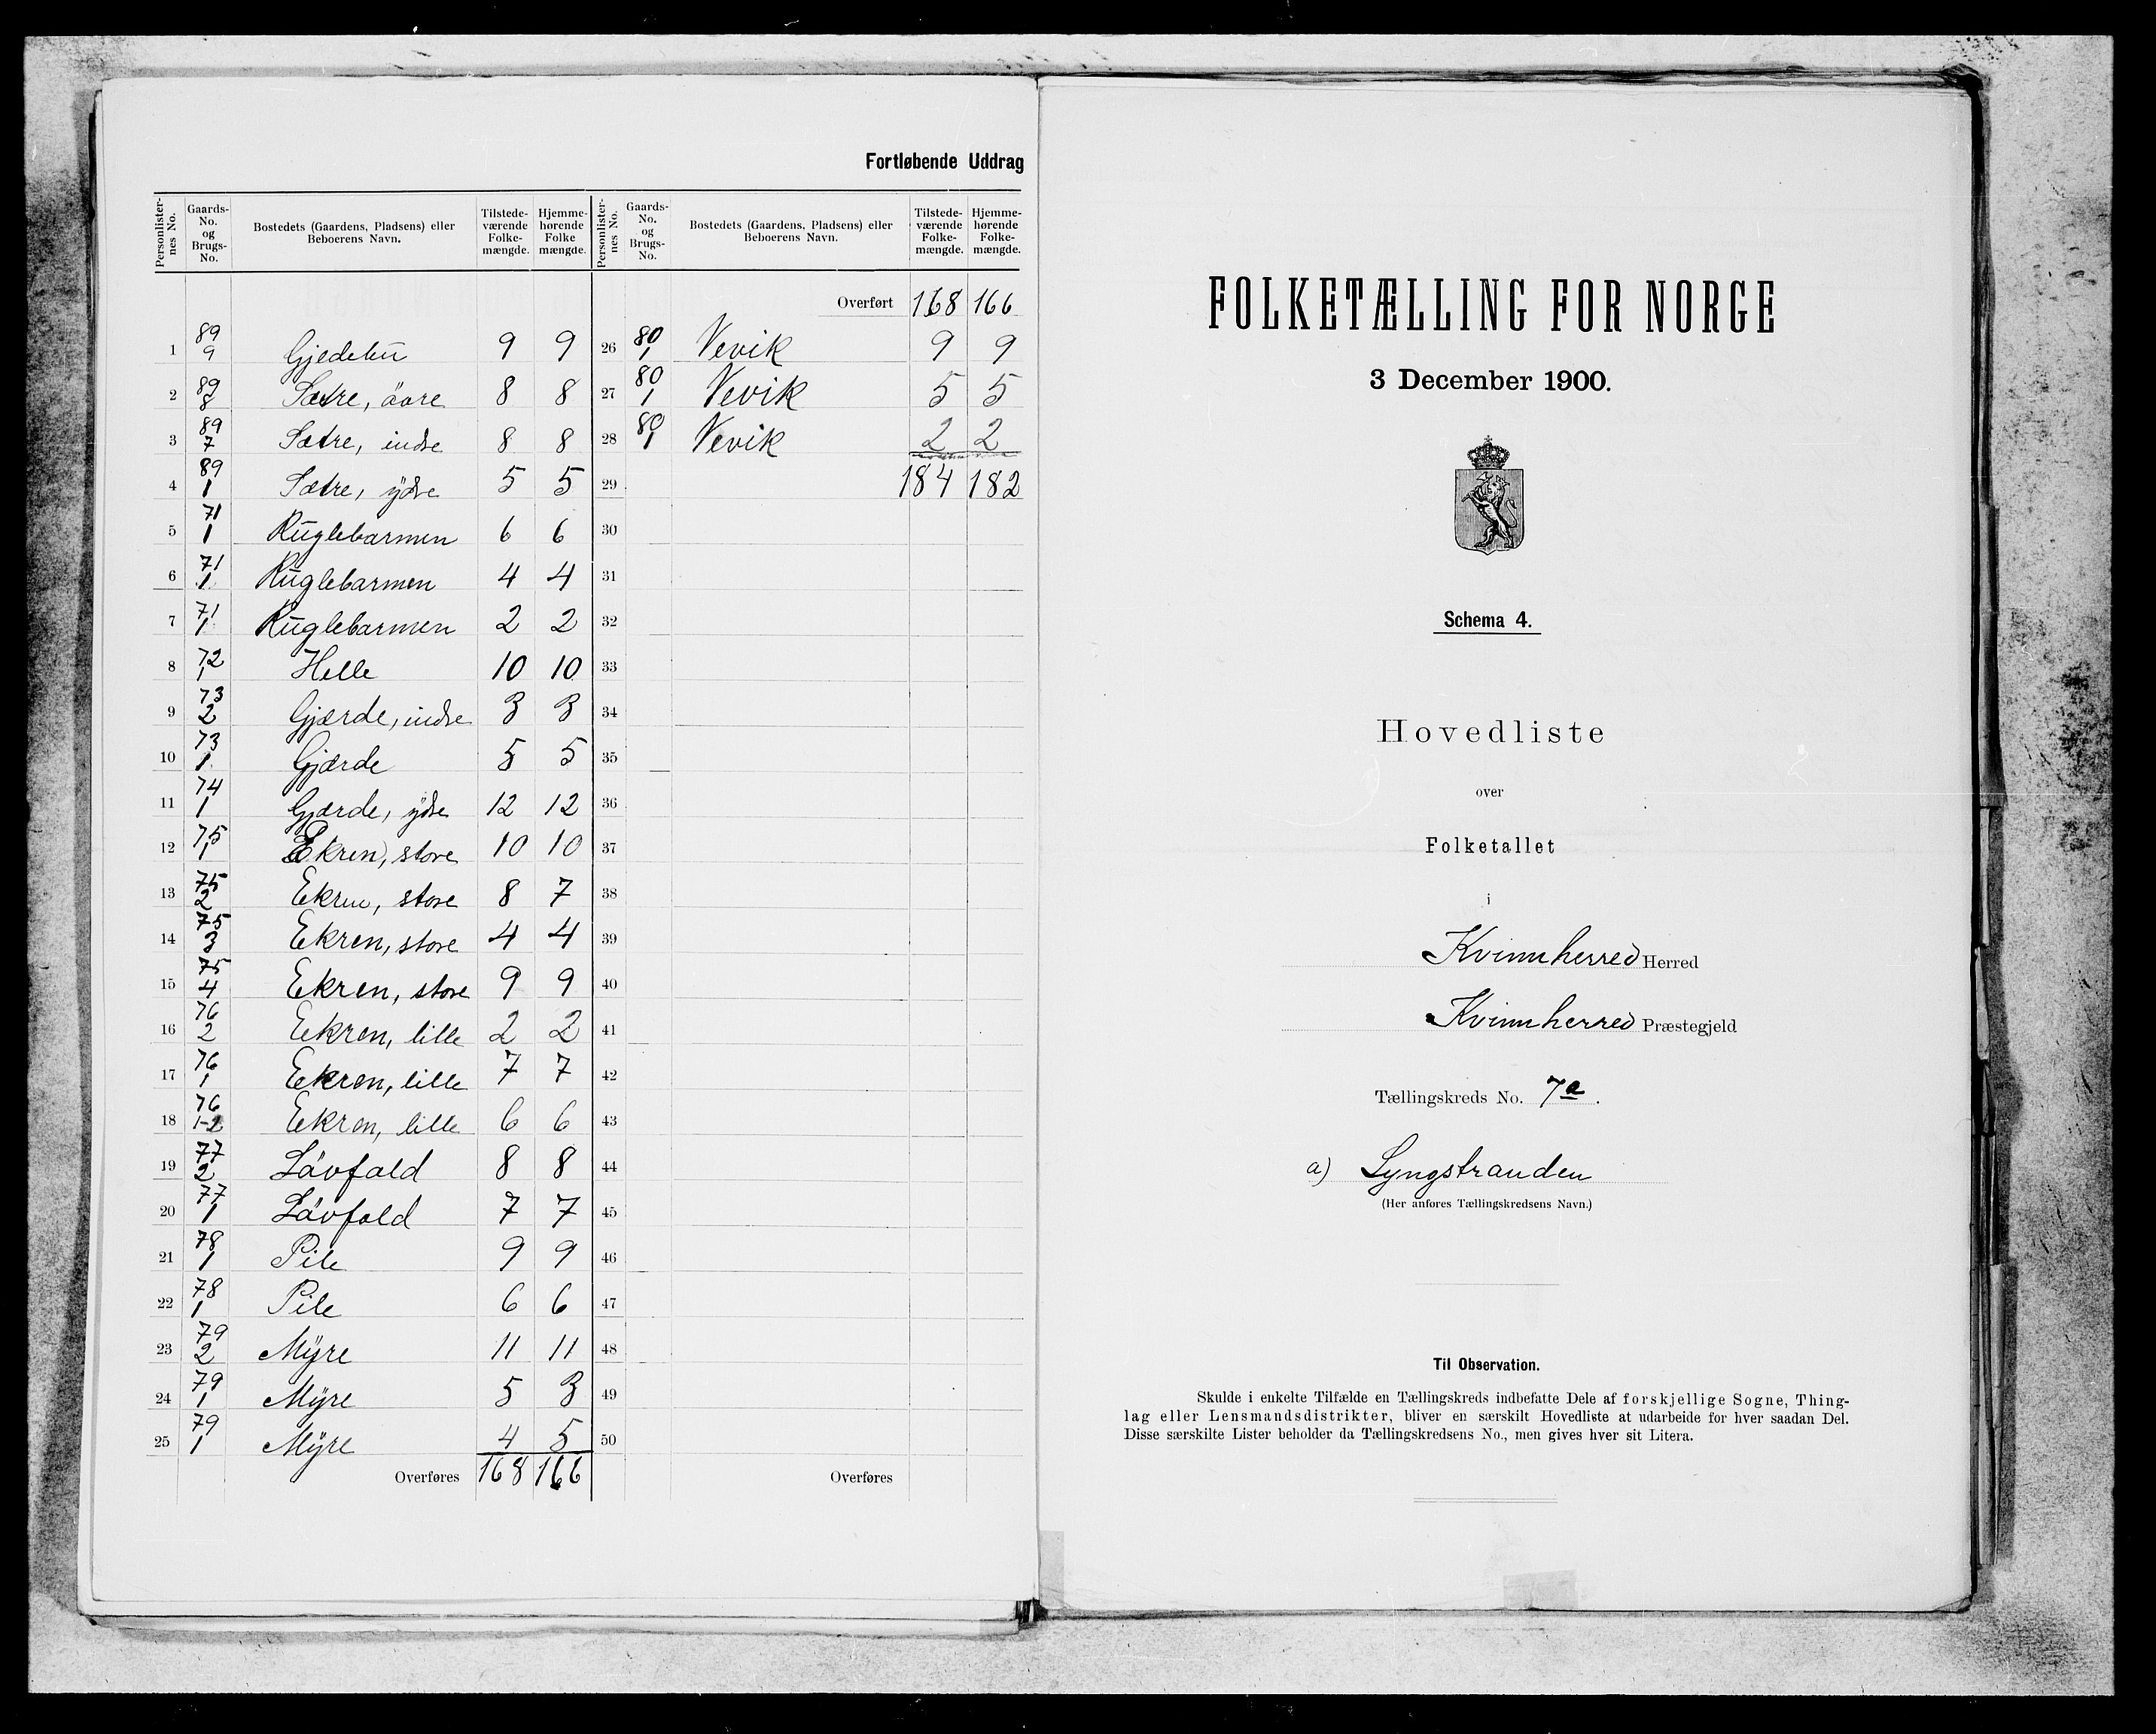 Fortløbende Uddrag
Personlisternes No. Gaards-No. og Brugs-No. Bostedets (Gaardens, Pladsens) eller Beboerens Navn. Tilstedeværende Folkemængde. Hjemmehørende Folkemængde. Personlisternes No. Gaards-No. og Brugs-No. Bostedets (Gaardens, Pladsens) eller Beboerens Navn. Tilstedeværende Folkemængde. Hjemmehørende Folkemængde.
Overført 168 166
1 89/9 Gjedebü 9 9 26 80/1 Vevik 9 9
2 89/8 Sætre, övre 8 8 27 80/1 Vevik 5 5
3 89/7 Sætre, indre 8 8 28 80/1 Vevik 2 2
4 89/1 Sætre, ydre 5 5 29 184 182
5 71/1 Kuglebarmen 6 6 30
6 71/1 Kuglebarmen 4 4 31
7 71/1 Kuglebarmen 2 2 32
8 72/1 Helle 10 10 33
9 73/2 Gjærde, indre 3 3 34
10 73/1 Gjærde 5 5 35
11 74/1 Gjærde, ydre 12 12 36
12 75/1 Ekren, store 10 10 37
13 75/2 Ekren, store 8 7 38
14 75/3 Ekren, store 4 4 39
15 75/4 Ekren, store 9 9 40
16 76/2 Eekren, lille 2 2 41
17 76/1 Eekren, lille 7 7 42
18 76/1-2 Eekren, lille 6 6 43
19 77/2 Lövfald 8 8 44
20 77/1 Lövfald 7 7 45
21 78/1 Pile 9 9 46
22 78/1 Pile 6 6 47
23 79/2 Mÿre 11 11 48
24 79/1 Mÿre 5 3 49
25 79/1 Mÿre 4 5 50
Overføres 168 166 Overføres
FOLKETÆLLING FOR NORGE
3 December 1900.
Schema 4.
Hovedliste
over
Folketallet
i
Kvinnherred Herred
Kvinnherred Præstegjeld
Tællingskreds No. 7a.
a) Lyngstranden
(Her anføres Tællingskredsens Navn.)
Til Observation.
Skulde i enkelte Tilfælde en Tællingskreds indbefatte Dele af forskjellige Sogne, Thing-
lag eller Lensmandsdistrikter, bliver en særskilt Hovedliste at udarbeide for hver saadan Del.
Disse særskilte Lister beholder da Tællingskredsens No., men gives hver sit Litera.